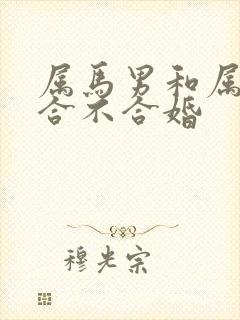 属马男和属
合不合婚
穆光宗